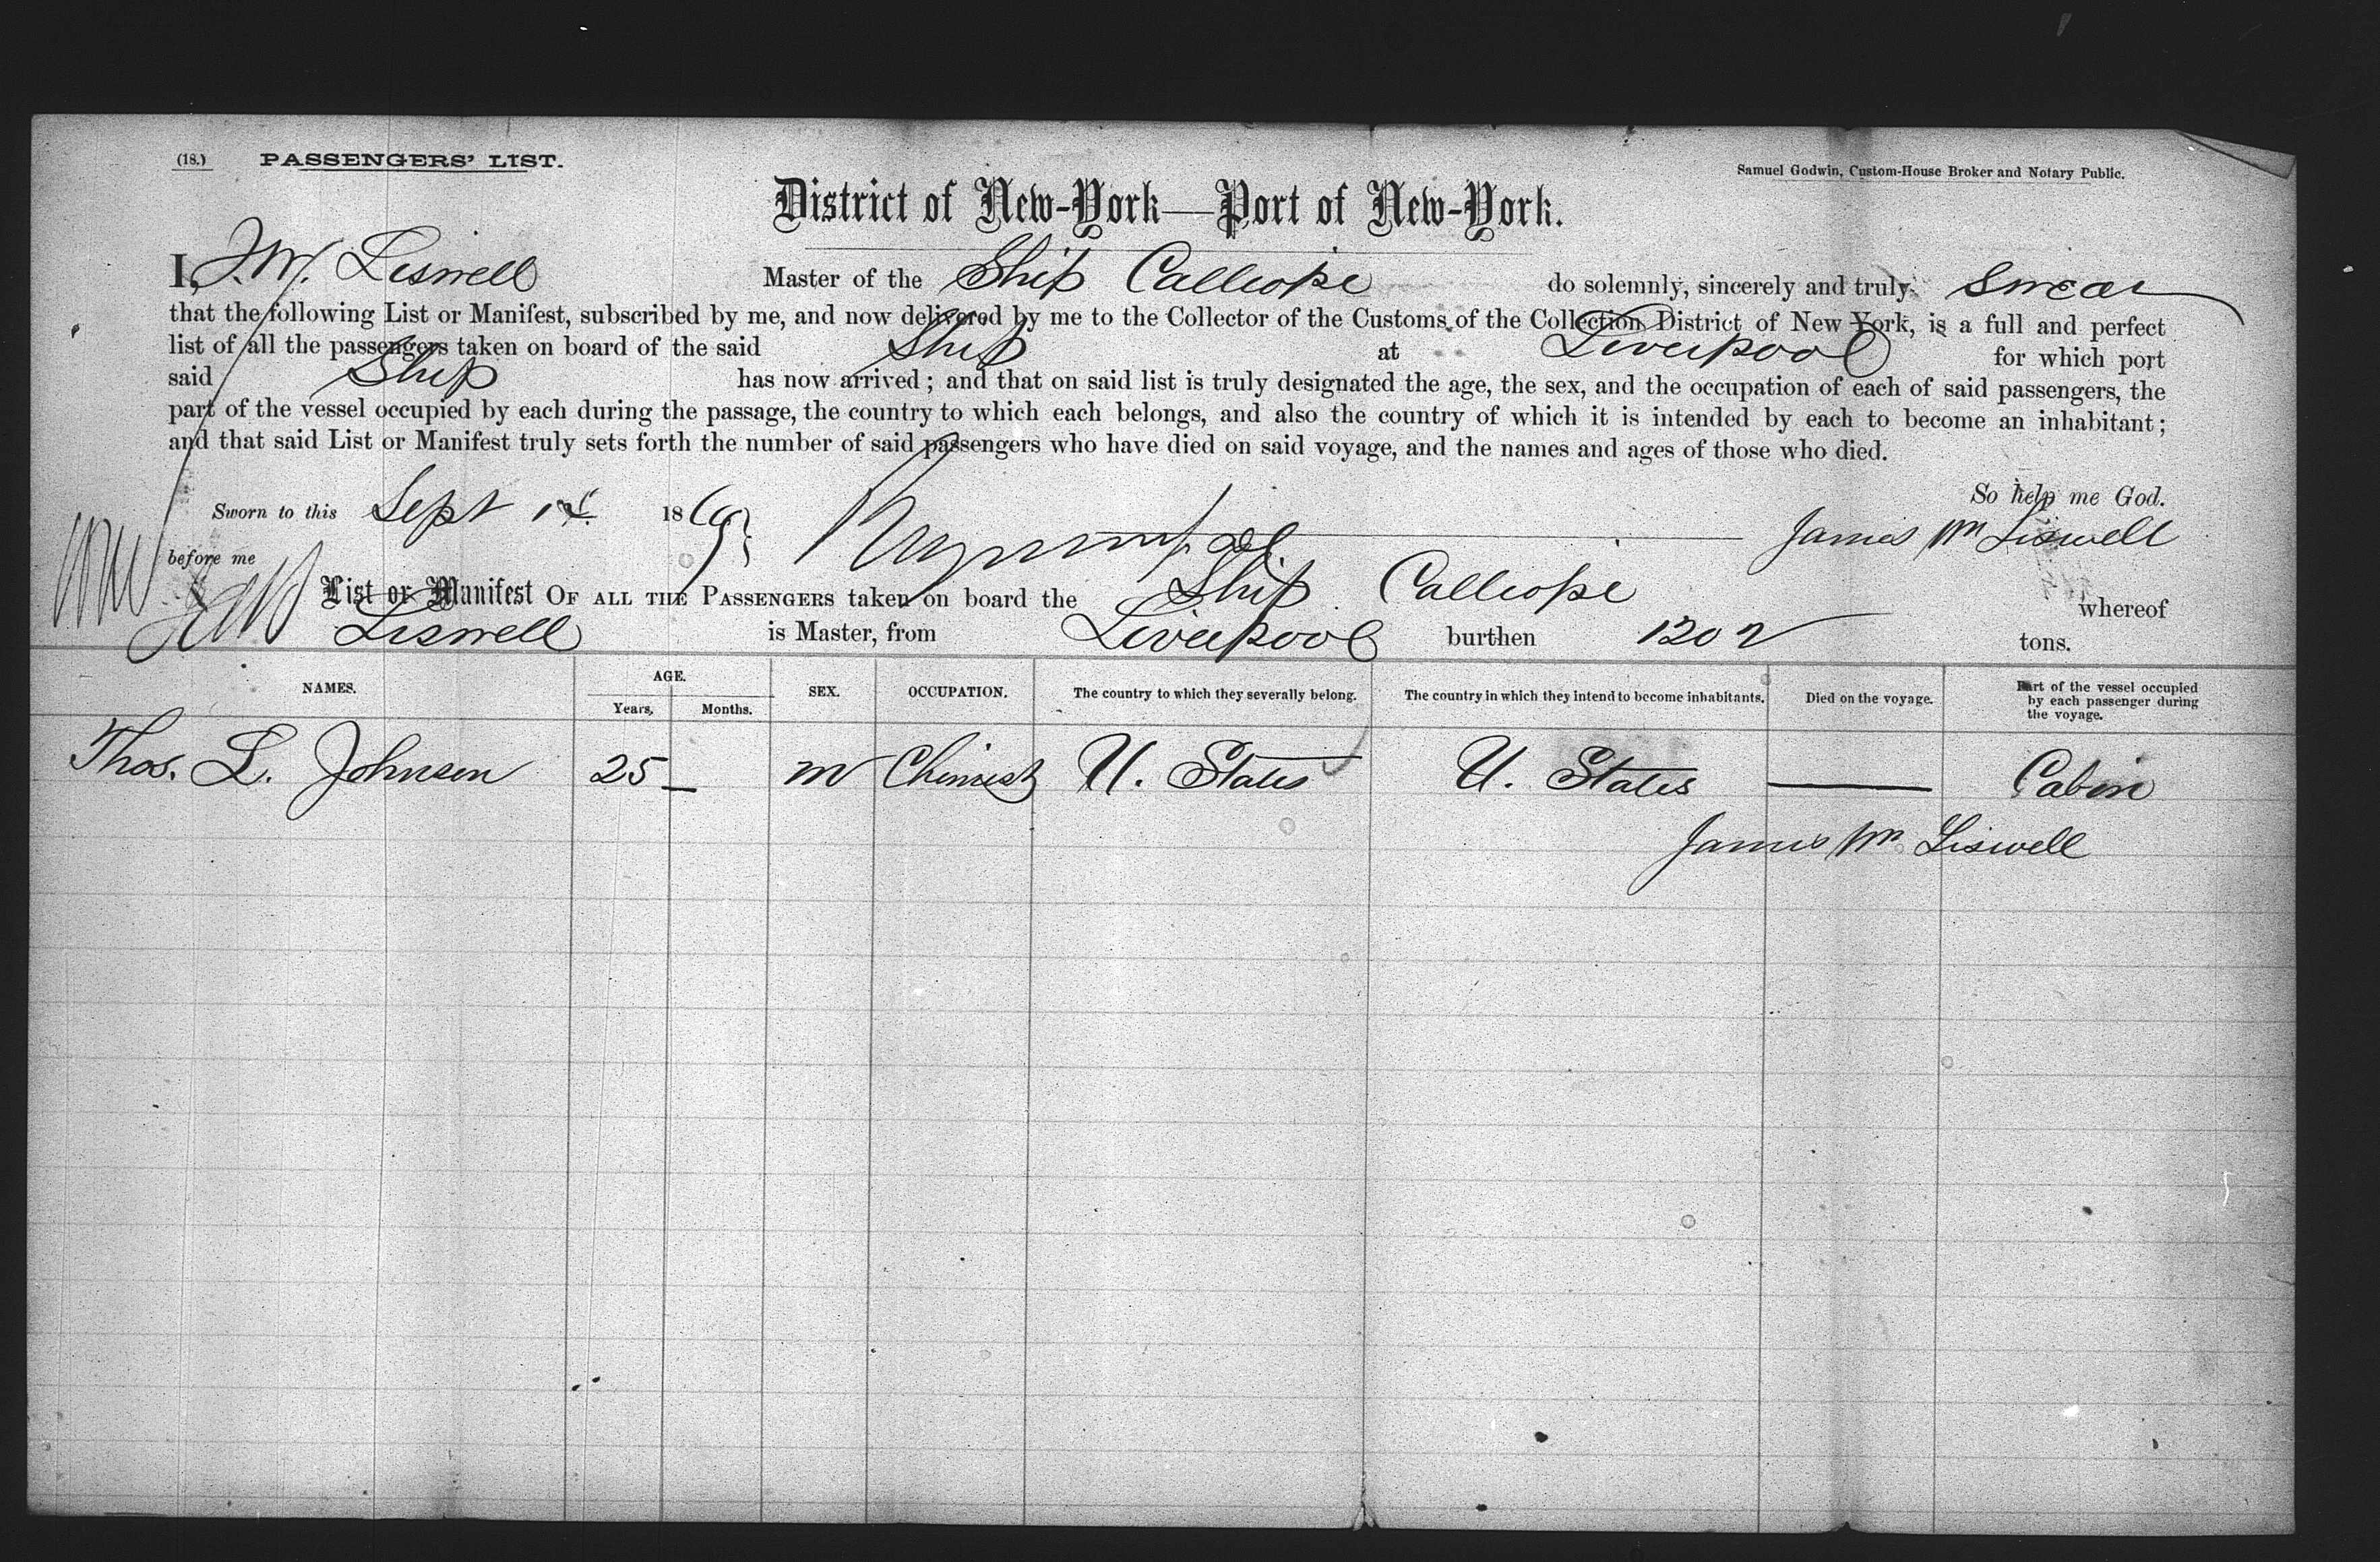 (18.) PASSENGERS' LIST.
Samuel Godwin, Custom-House Broker and Notary Public.
District of New-York—Port of New-York.
I, J. W. Liswell Master of the Ship Calliope do solemnly, sincerely and truly swear
that the following List or Manifest, subscribed by me, and now delivered by me to the Collector of the Customs of the Collection District of New York, is a full and perfect
list of all the passengers taken on board of the said Ship at Liverpool for which port
said Ship has now arrived; and that on said list is truly designated the age, the sex, and the occupation of each of said passengers, the
part of the vessel occupied by each during the passage, the country to which each belongs, and also the country of which it is intended by each to become an inhabitant;
and that said List or Manifest truly sets forth the number of said passengers who have died on said voyage, and the names and ages of those who died.
So help me God.
Sworn to this Sept 1869
James Wm Liswell
before me
List or Manifest OF ALL THE PASSENGERS taken on board the Ship Calliope whereof
Liswell is Master, from Liverpool burthen 1202 tons.
NAMES. AGE. Years, Months. SEX. OCCUPATION. The country to which they severally belong. The country in which they intend to become inhabitants. Died on the voyage. Part of the vessel occupied by each passenger during the voyage.
Thos. L. Johnson 25 — m Chemist U. States U. States — Cabin
James Wm Liswell